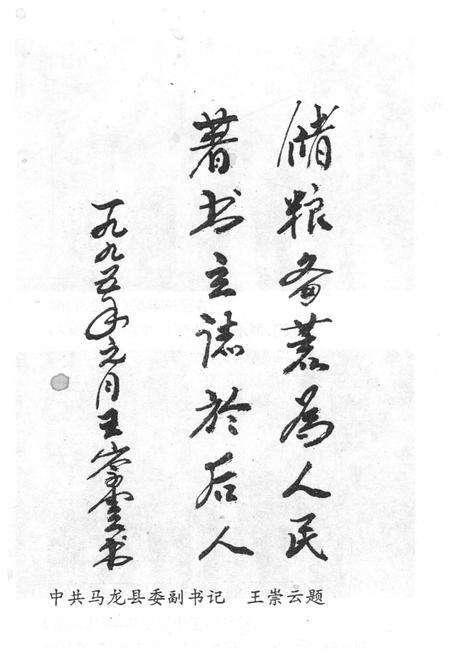 储粮备荒为人民
著书立誌於后人
一九九五年元月王崇云书
中共马龙县委副书记 王崇云题